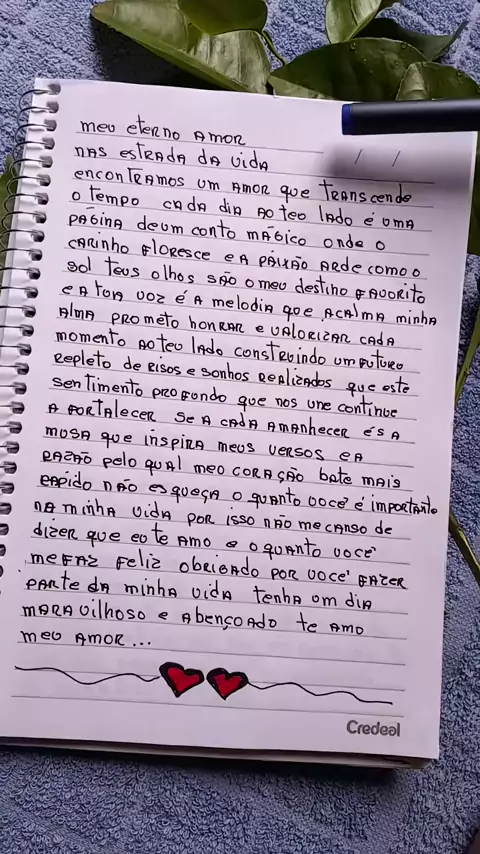 meu eterno AmoR
/ /
NAS estRADA DA viDA
encontRAMOS um AmoR que TRANSCende
o tempo CADA diA Ao teu lADo é umA
PÁGiNA deum conto mÁGico onde o
CARiNho FloResce e A PAixÃo ARDe como o
sol teus olhos SÃO o meu destiNo FAVoRito
e A tuA voz é A meloDiA que ACAlmA minhA
AlmA PRometo honRAR e VAloRizAR CADA
momento Ao teu lADo constRuindo um Futuro
Repleto de Risos e sonhos ReAlizADos que este
sentimento PRoFundo que nos une continue
A FoRtAlecer Se A CADA AmAnhecer éS A
musA que inspiRA meus VeRsos e A
RAzÃo pelo quAl meu coRAção bAte mAis
RApido nÃo esqueçA o quAnto você é importAnte
nA minhA viDA por isso nÃo me cAnso de
dizer que eu te Amo e o quAnto você
me FAz Feliz obRiGADo por você FAzeR
PARte DA minhA viDA tenhA um diA
mARAvilhoso e AbençoADo te Amo
meu AmoR...
Credeal